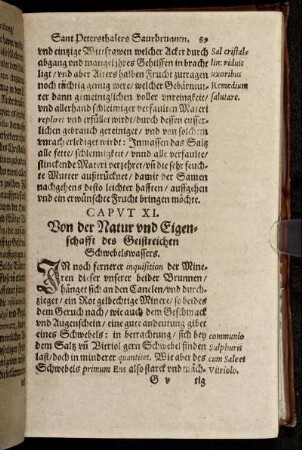 Sant Petersthalers Saurbrunnen. 89
vnd eintzige Wirffrawen welcher Acker durch
abgang vnd mangel jhres Gehülffen in bracht
ligt / vnd aber Alters halben Frucht zutragen
noch tüchtig genug were / welcher Gebärmut-
ter dann gemeiniglichen voller vnreinigkeit /
vnd allerhand schleimiger verfaulten Materi
replet / vnd erfüllet wirdt / durch dessen eusser-
lichen gebrauch gereiniget / vnd von solchem
vnrach erlediget wirdt : Inmassen das Saltz
alle fette / schleimigte / vnnd alle verfaulte /
stinckende Materi verzehret / vñ die sehr feuch-
te Mutter außtrücknet / damit der Samen
nachgehens desto leichter hafften / auffgehen
vnd ein erwünschte Frucht bringen möchte.
Sal cristal-
lin: viduis
uxoribus
Remedium
salutare.
CAPVT XI.
Von der Natur vnd Eigen-
schafft des Geistreichen
Schwebelwassers.
IN noch fernerer inquisition der Mine-
ren diser vnserer beider Brunnen /
hänget sich an den Canelen / vnd durch-
zieget / ein Rotgelbechtige Minere / so beides
dem Geruch nach / wie auch dem Geschmack
vnd Augenschein / eine gute andeutung gibet
eines Schwebels : in betrachtung / sich bey
dem Saltz vñ Vitriol gern Schwebel finden
last / doch in minderer quantitet. Wie aber des
Schwebels primum Ens also starck vnd mäch-
communio
Sulphuris
cum Sale et
Vitriolo.
G v tig